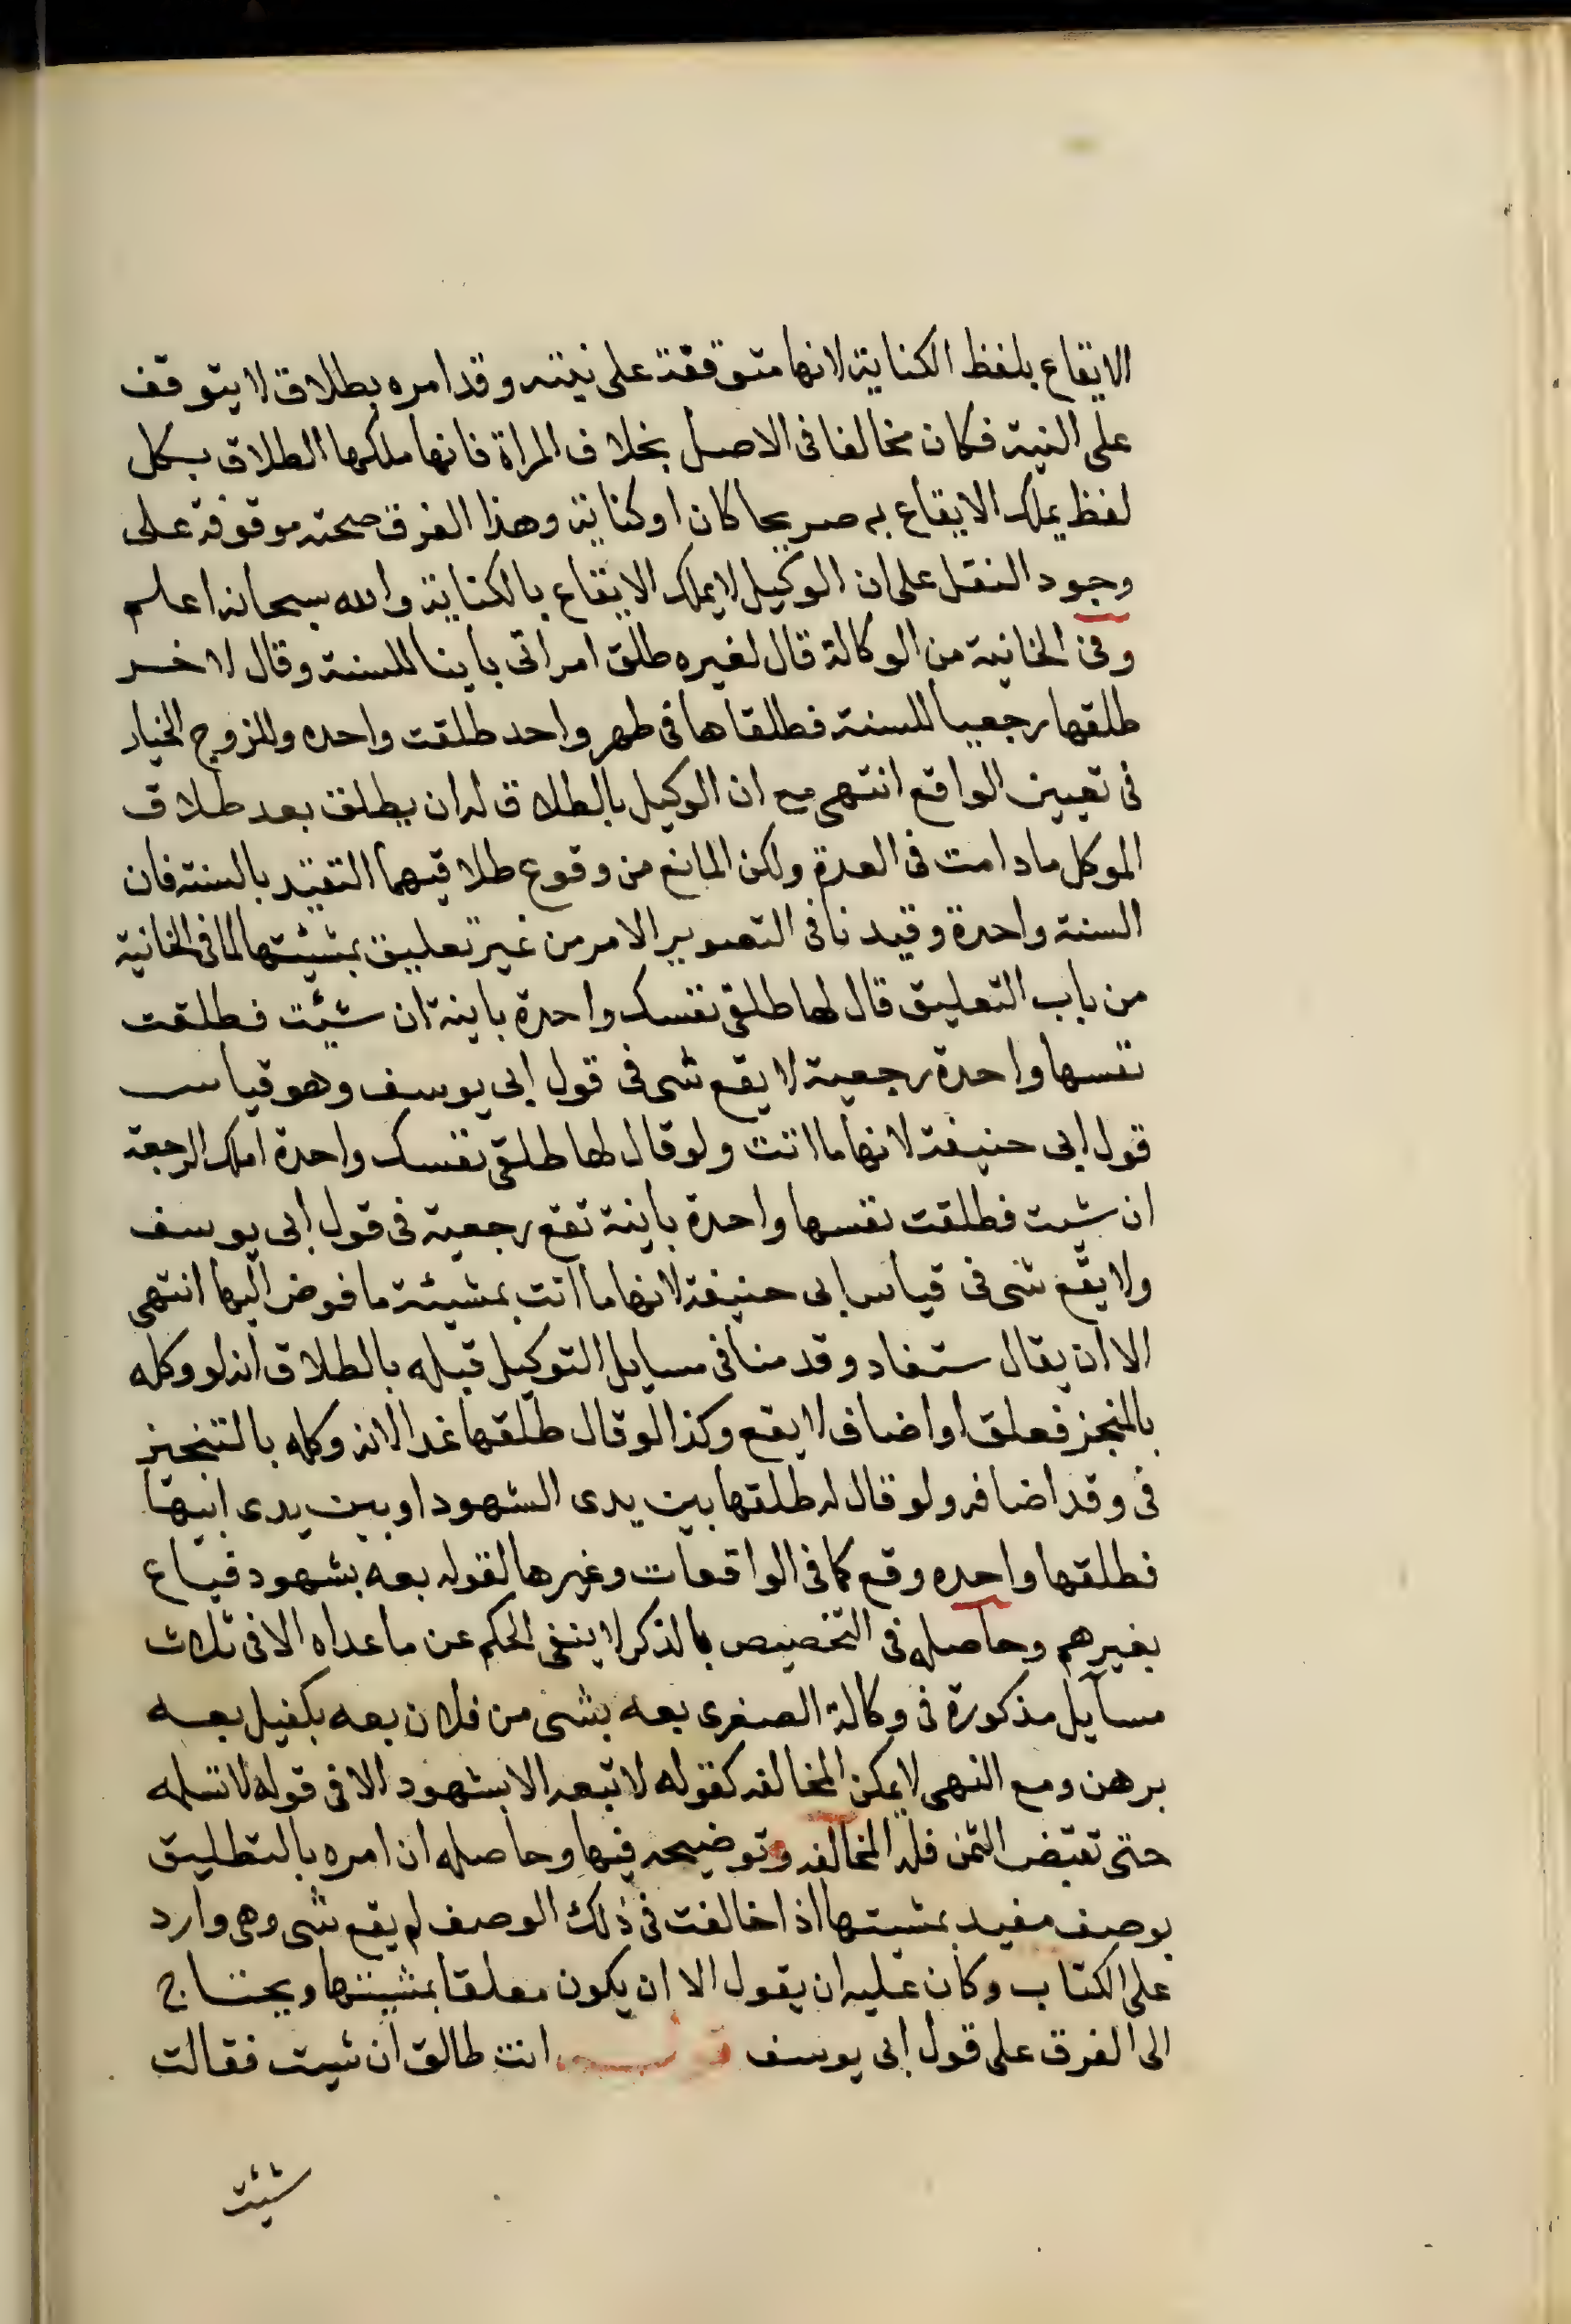 الايقاع بلفظ الكناية لانها متوقفة على نيته وقد امره بطلاق لا يتوقف
على النية فكان مخالفا فى الاصل بخلاف المراة فانها ملكها الطلاق بكل
لفظ يملك الايقاع به صريحا كان او كناية وهذا الفرق صحته موقوفة على
وجود النقل على ان الوكيل لا يملك الايقاع بالكناية والله سبحانه اعلم
وفى الخانية من الوكالة قال لغيره طلق امراتى باينا للسنة وقال لاخر
طلقها رجعيا للسنة فطلقاها فى طهر واحد طلقت واحده وللزوج الخيار
فى تعيين الواقع انتهى مع ان الوكيل بالطلاق له ان يطلق بعد طلاق
الموكل ما دامت فى العدة ولكن المانع من وقوع طلاقيهما التقيد بالسنة فان
السنة واحدة وقيدنا فى التصوير الامر من غير تعليق بمشيئتها لما فى الخانية
من باب التعليق قال لها طلقى نفسك واحدة باينة ان شيئت فطلقت
نفسها واحدة رجعية لا يقع شى فى قول ابى يوسف وهو قياس
قول ابى حنيفة لانها ما اتت ولو قال لها طلقى نفسك واحدة املك الرجعة
ان شيت فطلقت نفسها واحدة باينة تقع رجعية فى قول ابى يوسف
ولا يقع شى فى قياس ابى حنيفة لانها ما اتت بمشيئة ما فوض اليها انتهى
الا ان يقال ستفاد وقدمنا فى مسايل التوكيل قبله بالطلاق انه لو وكله
بالمنجز فعلق او اضاف لا يقع وكذا لو قال طلقها غدا لانه وكله بالتنجيز
فى وقد اضافه ولو قال له طلقها بين يدى الشهود او بين يدى ابيها
فطلقها واحده وقع كما فى الواقعات وغيرها لقوله بعه بشهود فباع
بغيرهم وحاصله فى التخصيص بالذكر لا ينفى الحكم عن ما عداه الا فى ثلاث
مسآيل مذكورة فى وكالة الصغرى بعه بشى من فلان بعه بكفيل بعه
برهن ومع النهى لا يمكن المخالفه كقوله لا تبعه الا بشهود الا فى قوله لا تسلمه
حتى تقبض الثمن فله المخالفه وتوضيحه فيها وحاصله ان امره بالتطليق
بوصف مفيد بمشيتها اذا خالفت فى ذلك الوصف لم يقع شى وهى وارد
على الكتاب وكان عليه ان يقول الا ان يكون معلقا بمشيتها ويحتاج
الى الفرق على قول ابى يوسف قوله انت طالق ان شيت فقالت
شيئت